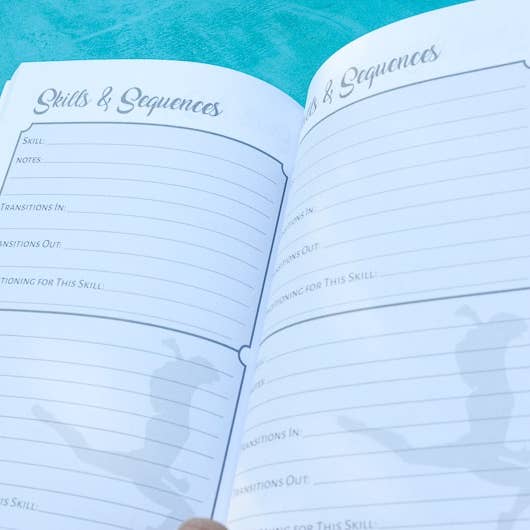 Skills & Sequences
Skill:
Notes:
Transitions In:
ansitions Out:
tioning for This Skill:
is Skill:
ills & Sequences
sitions In:
nsitions Out:
tioning for This Skill:
otes
ansitions In:
ransitions Out:
ioning for This Skill: